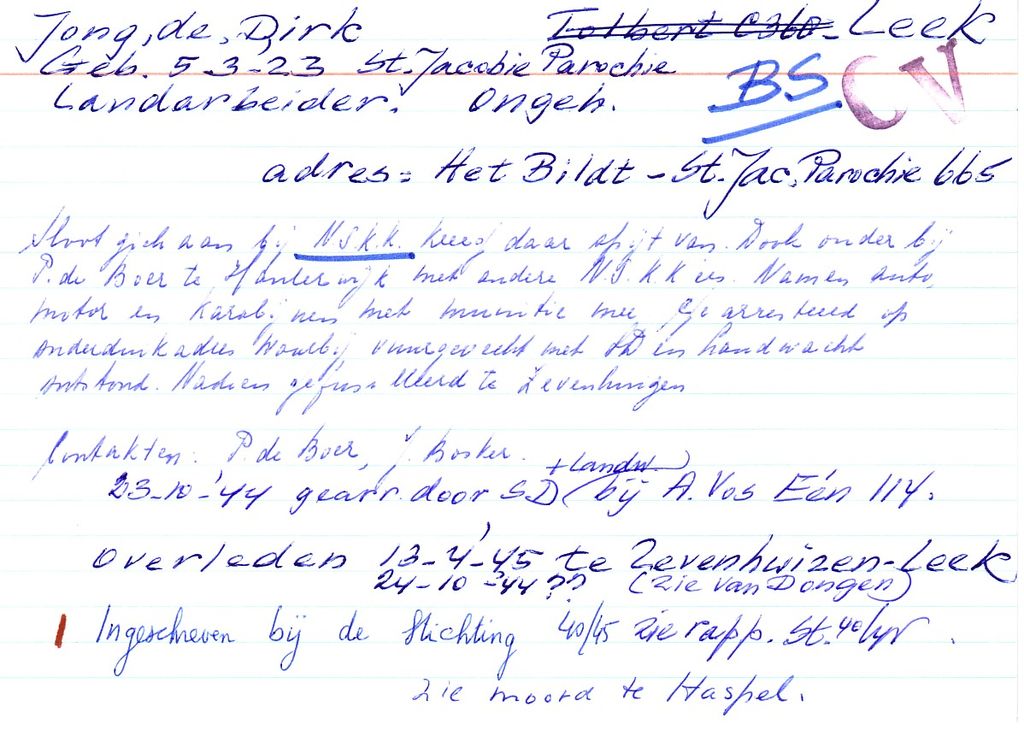 Jong, de, Dirk Tolbert C360 - Leek
Geb. 5-3-23 St. Jacobie Parochie
Landarbeider. Ongeh. BS CV
adres = Het Bildt - St. Jac. Parochie 665
Sloot zich aan bij N.S.K.K. Kreeg daar spijt van. Dook onder bij
P. de Boer te Harderwijk met andere N.S.K.K.ers. Namen auto,
motor en karabijnen met munitie mee. Gearresteerd op
onderduikadres waarbij vuurgevecht met SD en Landwacht
ontstond. Nadien gefusilleerd te Zevenhuizen
Contakten: P. de Boer, J. Bosker.
+ Landw
23-10-'44 gearr. door SD ( bij A. Vos Eén 114.
overleden 13-4-'45 te Zevenhuizen-Leek
24-10-'44?? (zie van Dongen)
Ingeschreven bij de Stichting 40/45 zie rapp. St. 40/45.
zie moord te Haspel.